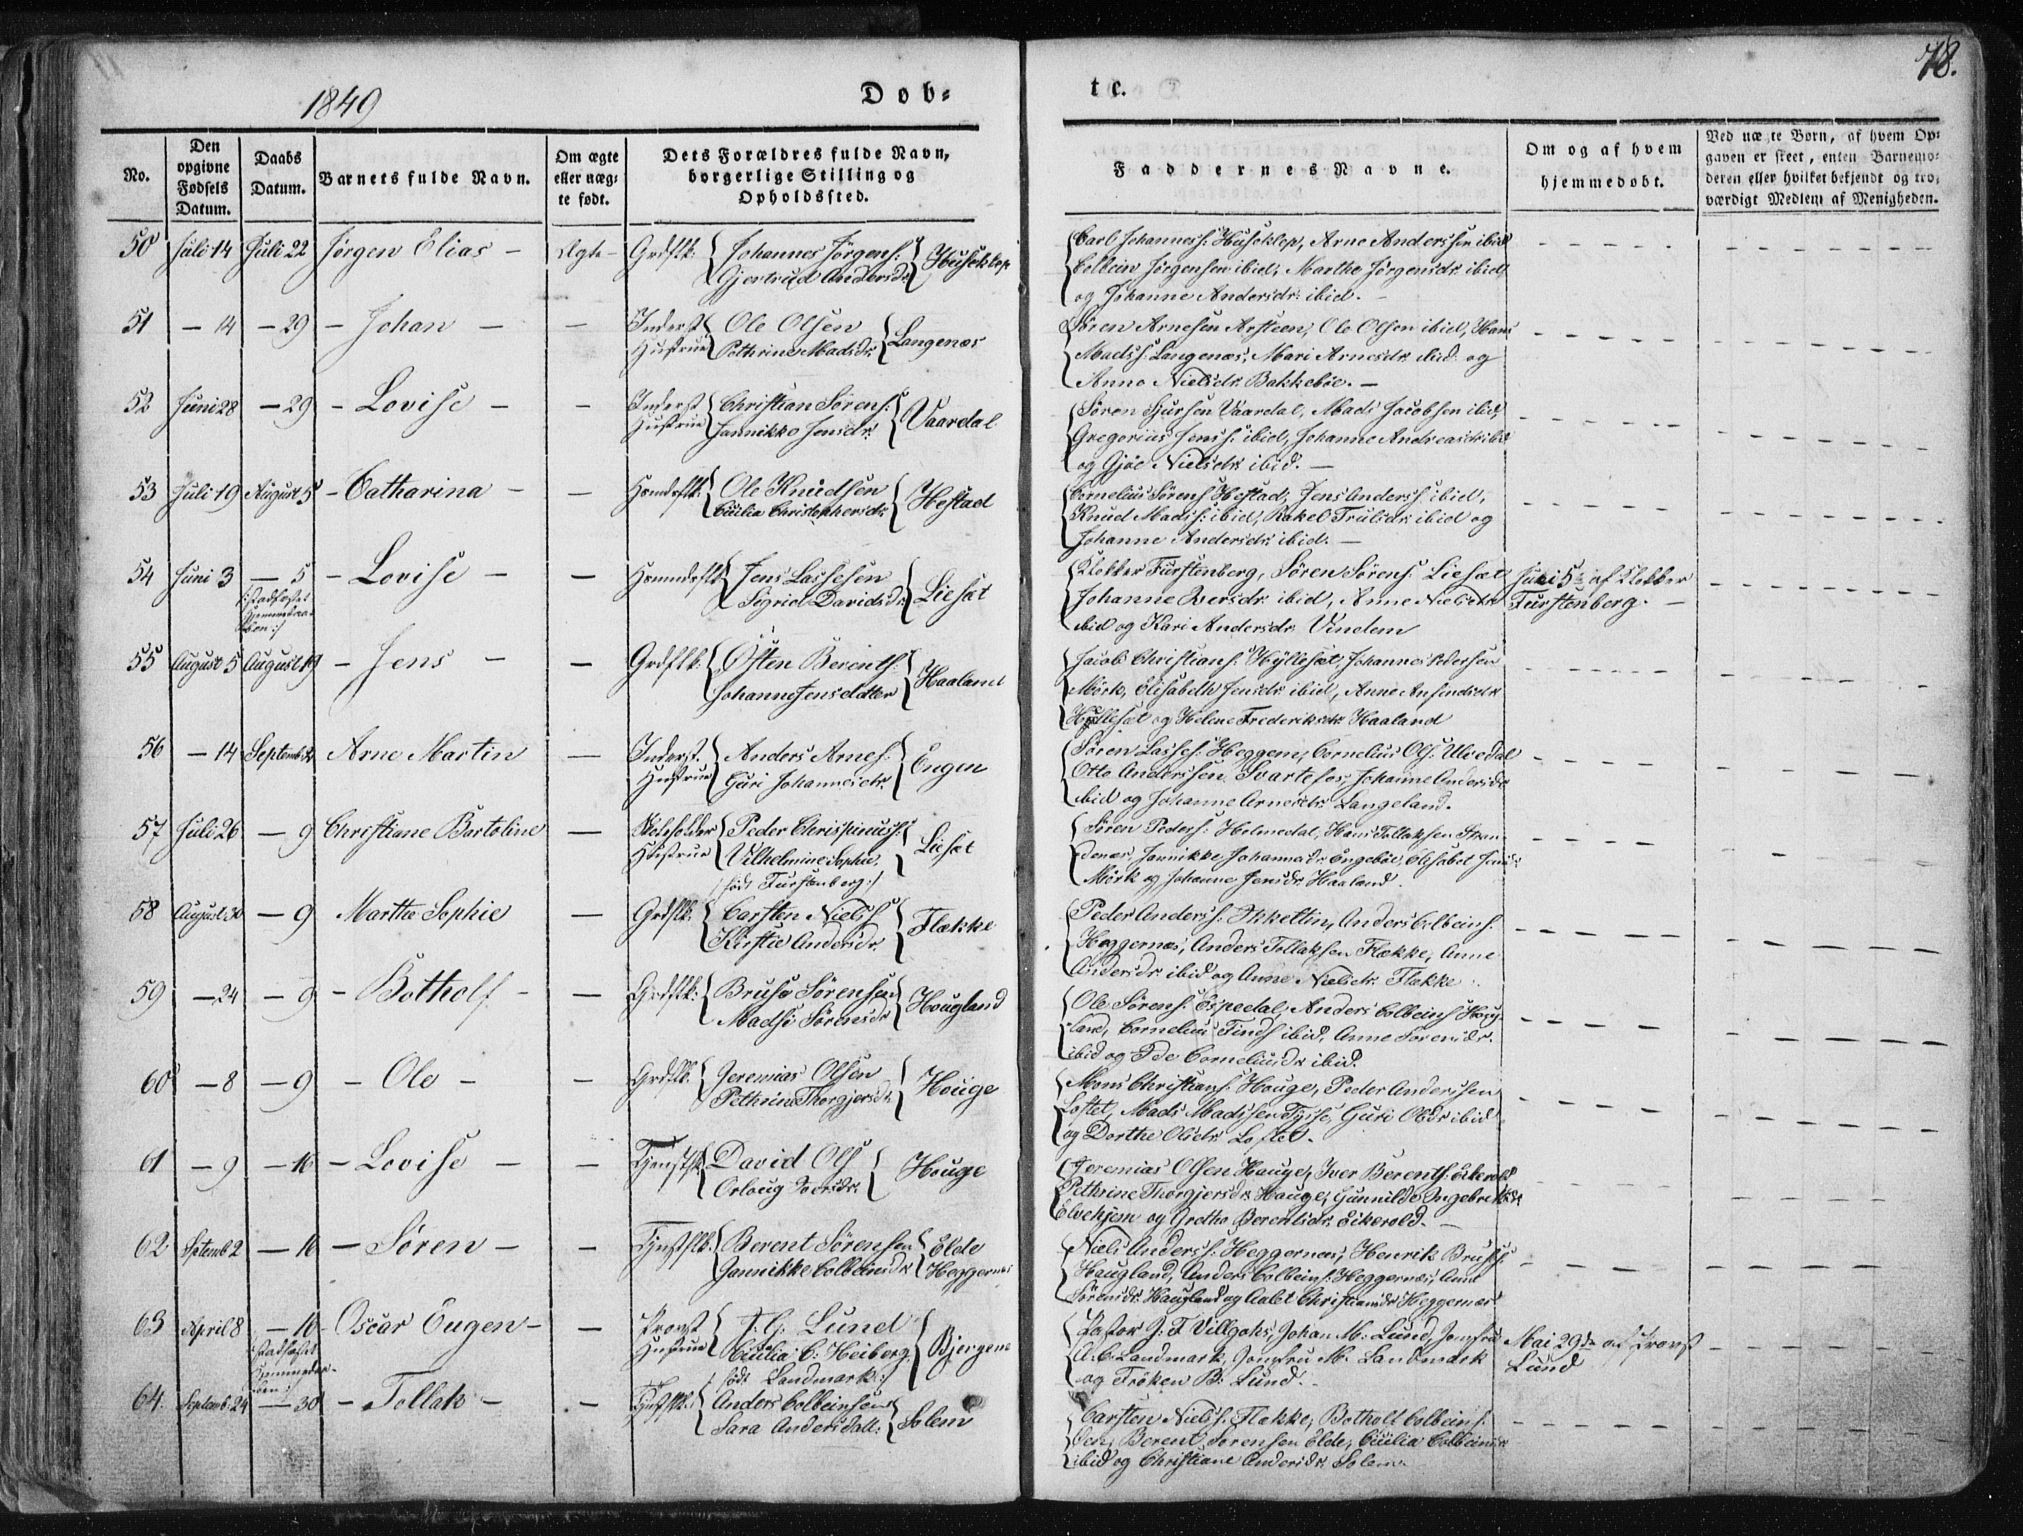 1849
Døb-
te.
78.
No.
Den opgivne Fødsels Datum.
Daabs Datum.
Barnets fulde Navn.
Om ægte eller uæg- te født.
Dets Forældres fulde Navn, borgerlige Stilling og Opholdssted.
Faddernes Navne.
Om og af hvem hjemmedøbt.
Ved uægte Børn, af hvem Op- gaven er skeet, enten Barnemo- deren eller hvilket bekjendt og tro- værdigt Medlem af Menigheden.
50 Juli 14 Juli 22 Jørgen Elias - Ægte - Grdflk: Johannes Jørgens: Gjertrud Andersdr: Husøklep
Carl Johanness: Husøklep, Arne Anderssen ibid
Colbein Jørgensen ibid, Marthe Jørgensdr: ibid,
og Johanne Andersdr: ibid. -
51 - 14 - 29 - Johan - - Inderst Hustrue Ole Olsen Pethrine Madsdr: Langenæs
Søren Arnesen Arsteen, Ole Olsen ibid, Hans
Madss: Langenæs, Mari Arnesdr: ibid og
Anne Nielsdr: Bakkebøe. -
52 Juni 28 - 29 - Lovise - - Inderst Hustrue Christian Sørens: Jannikke Jensdr: Vaardal
Søren Sjursen Vaardal, Mads Jacobsen ibid,
Gregorius Jenss: ibid, Johanne Andreasdr: ibd
og Gjøe Nielsdr: ibid. -
53 Juli 19 August 5 - Catharina - - Ole Knudsen Cicilia Christophersdr: Hestad
Cornelius Sørens: Hestad, Jens Anderss: ibid,
Knud Madss: ibid, Rakel Trulsdr: ibid og
Johanne Andersdr: ibid. -
54 Juni 3 - 5 - Lovise - - Jens Lassesen Sigrid Davidsdr: Liesæt
Klokker Furstenberg, Søren Sørens: Liesæt
Johanne Iversdr: ibid, Anne Nielsdr:
ibid og Kari Andersdr: Vindem
Juni 5te af Klokker Furstenberg. -
55 August 5 August 19 - Jens - - Grdflk: Østen Berents: Johanne Jensdatter Haaland
Jacob Christians: Hyllesæt, Johannes Pedersen
Mørk, Elisabeth Jensdr: ibid, Anne
Hyllesæt og Helene Frederiksdr: Haaland
56 - 14 Arne Martin - Inderst Hustrue Anders Arnes: Guri Johannesdr: Engen
Søren Lasses: Heggem, Cornelius Ols: Ulvedal
Otto Anderssen Svartefos, Johanne Andersdr:
ibid og Johanne Arnesdr: Langeland.
57 Juli 26 - 9 Christiane Bartoline - Skoleholder Hustrue Peder Chrispinuss: Vilhelmine Sophie, /:født Furstenberg:/ Liesæt
Søren Peders: Holmedal, Hans Tollaksen Stran-
denæs, Jannikke Johannesdr: Engebøe, Elisabet Jensdr:
Mørk og Johanne Jensdr: Haaland.
58 August 30 - 9 Marthe Sophie - Grdflk: Carsten Nielss: Kirstie Andersdr: Flække
Peder Anderss: Anders Colbeins:
Heggernæs, Anders Tollaksen Flække, Anne
Andersdr: ibid og Anne Nielsdr: Flække.
59 - 24 - 9 - Botholf - - Grdflk: Bruse Sørensen Madsi Sørensdr: Hougland
Ole Sørens: Espedal, Anders Colbeins: Houg-
land, Cornelius Finds: ibid, Anne Sørensdr:
ibid og Ide Corneliusdr: ibid.
60 - 8 - 9 - Ole - - Grdflk: Jeremias Olsen Pethrine Thorgjersdr: Houge
Mons Christians: Houge, Peder Anderssen
Loftet, Mads Madssen Tysse, Guri Olsdr: ibid
og Dorthe Olsdr: Loftet.
61 - 9 - 16 - Lovise - - Tjenstflk: David Ols: Orloug Iversdr: Houge
Jeremias Olsen Hauge, Iver Berents: Eikerold
Pethrine Thorgjersdr: Hauge, Gunnilde Ingebretsdr:
Elvehjem og Grethe Berentsdr: Eikerold. -
62 Septemb 2 - 16 - Søren - - Tjenstflk: Berent Sørensen Jannikke Colbeinsdr: Elde Heggernæs
Niels Anderss: Heggernæs, Henrik Bruss:
Haugland, Anders Colbeins: Heggernæs, Anne
Sørensdr: Haugland og Aalet Christiansdr: Heggernæs.
63 April 8 - 16 - Oscar Eugen - - Provst Hustrue J. G. Lund Cicilia C: Heiberg, /:født Landmark:/ Bjergene
Pastor J. F. Villgohs, Johan M: Lund, Jomfru
A. C. Landmark, Jomfru M: Landmark
og Frøken B: Lund. -
Mai 29de af Provst Lund
64. Septemb: 24 - 30 - Tollak - - Anders Colbeinsen Sara Andersdatt: Solem
Carsten Nielss: Flække, Botholf Colbeins:
Berent Sørensen Elde, Cicilia Colbeinsdr:
ibid og Christiane Andersdr: Solem.